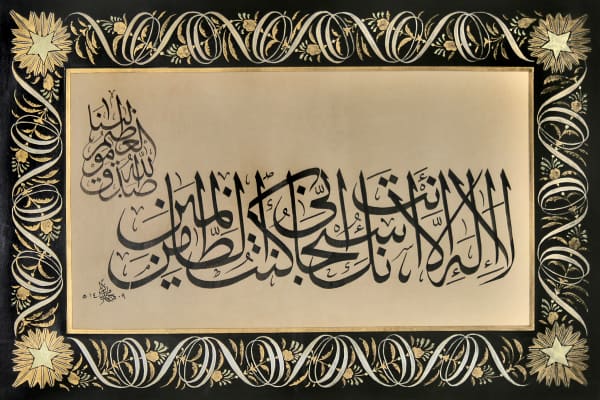 لا إله إلا أنت سبحانك إني كنت من الظالمين
صدق الله مولانا العظيم